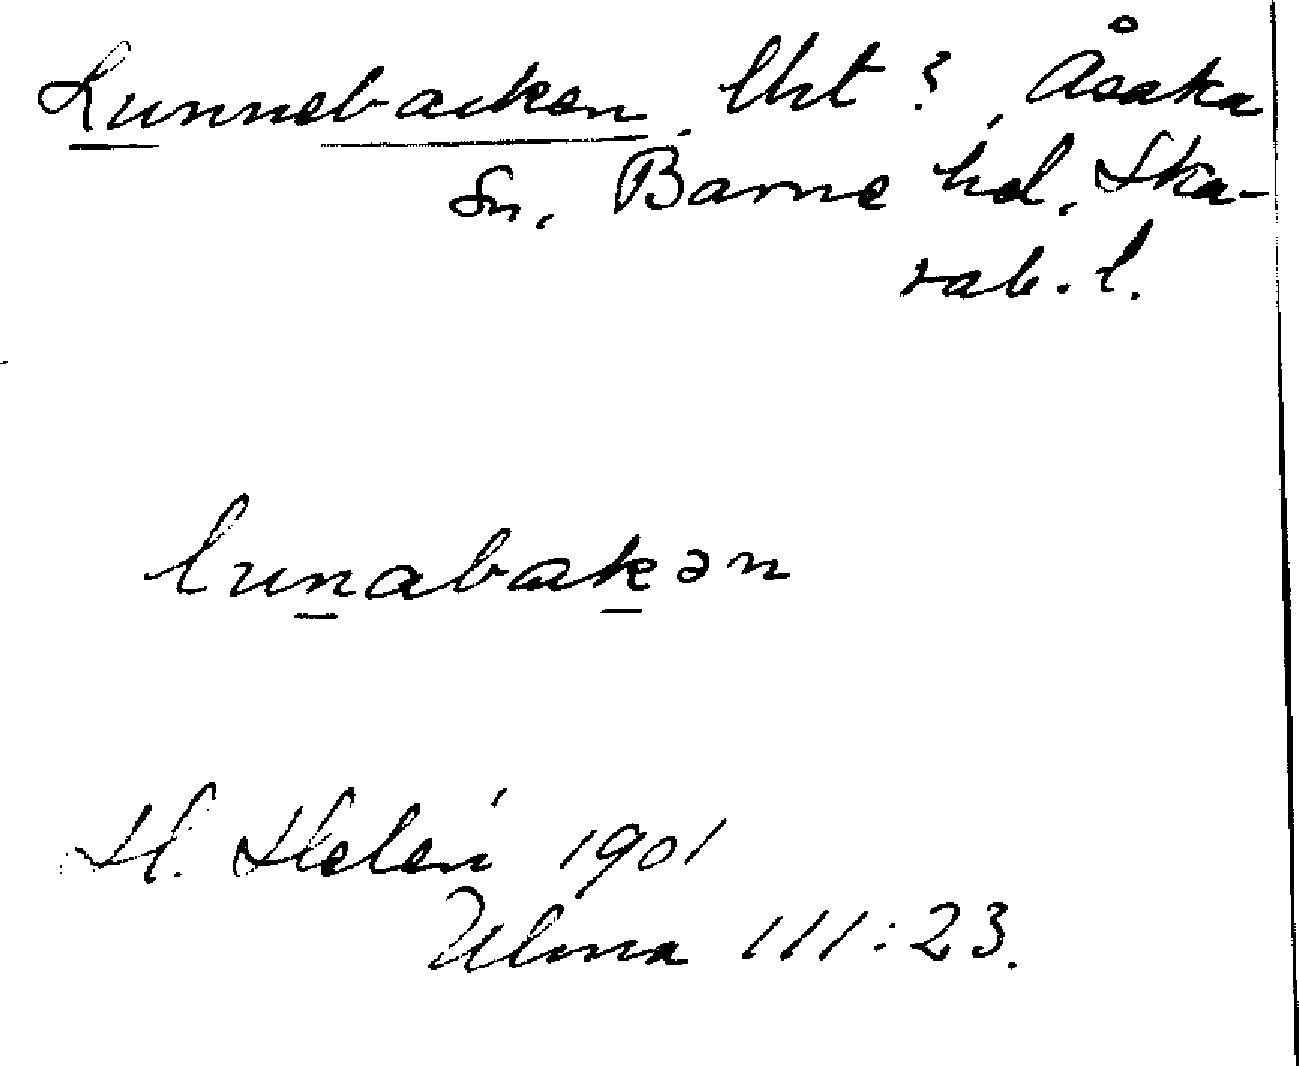 Lunnebacken, lht?, Åsaka
sn, Barne hd, Ska-
rab. l.
lunabakən
H. Helén 1901
Ulma 111:23.